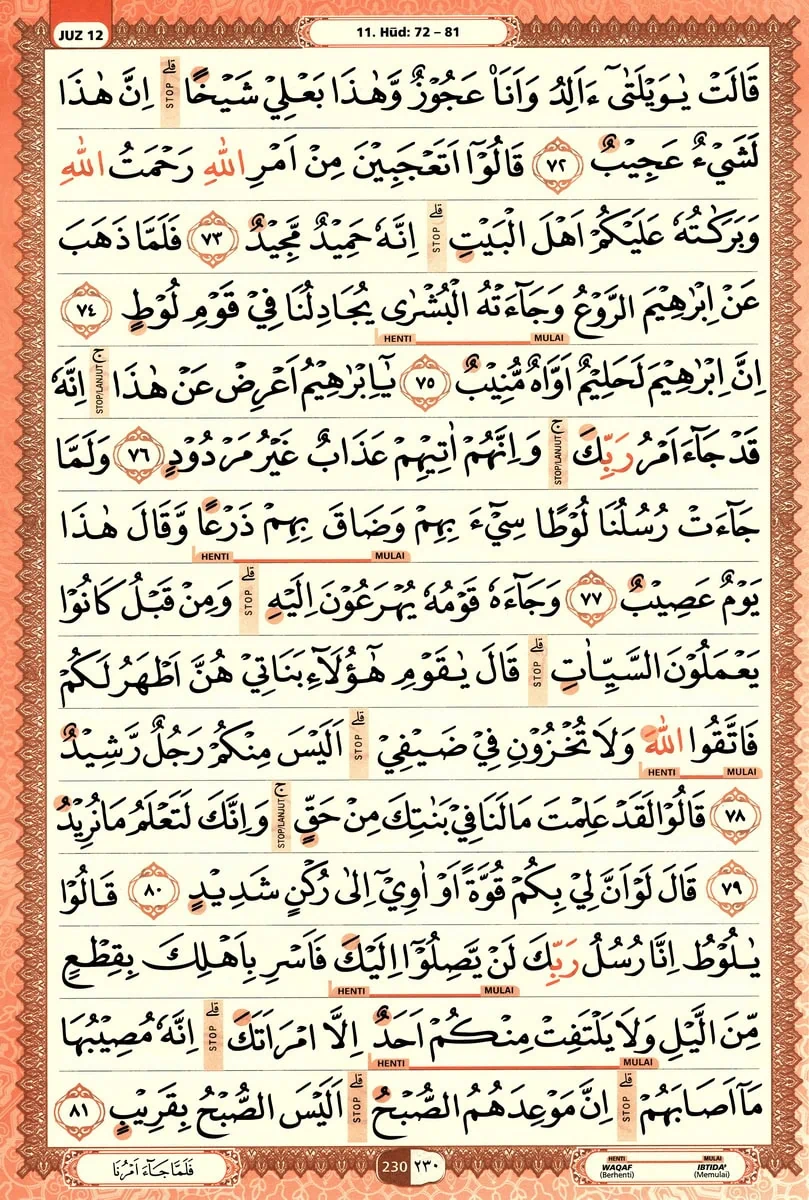 JUZ 12
11. Hūd: 72 – 81
قَالَتْ يٰوَيْلَتٰىٓ ءَاَلِدُ وَاَنَا۠ عَجُوْزٌ وَّهٰذَا بَعْلِيْ شَيْخًا ۗ STOP اِنَّ هٰذَا
لَشَيْءٌ عَجِيْبٌ ٧٢ قَالُوْٓا اَتَعْجَبِيْنَ مِنْ اَمْرِ اللّٰهِ رَحْمَتُ اللّٰهِ
وَبَرَكٰتُهٗ عَلَيْكُمْ اَهْلَ الْبَيْتِ ۗ STOP اِنَّهٗ حَمِيْدٌ مَّجِيْدٌ ٧٣ فَلَمَّا ذَهَبَ
عَنْ اِبْرٰهِيْمَ الرَّوْعُ وَجَاۤءَتْهُ الْبُشْرٰى يُجَادِلُنَا فِيْ قَوْمِ لُوْطٍ ٧٤
HENTI MULAI
اِنَّ اِبْرٰهِيْمَ لَحَلِيْمٌ اَوَّاهٌ مُّنِيْبٌ ٧٥ يٰٓاِبْرٰهِيْمُ اَعْرِضْ عَنْ هٰذَا ۚ STOP/LANJUT اِنَّهٗ
قَدْ جَاۤءَ اَمْرُ رَبِّكَ ۚ STOP/LANJUT وَاِنَّهُمْ اٰتِيْهِمْ عَذَابٌ غَيْرُ مَرْدُوْدٍ ٧٦ وَلَمَّا
جَاۤءَتْ رُسُلُنَا لُوْطًا سِيْۤءَ بِهِمْ وَضَاقَ بِهِمْ ذَرْعًا وَّقَالَ هٰذَا
HENTI MULAI
يَوْمٌ عَصِيْبٌ ٧٧ وَجَاۤءَهٗ قَوْمُهٗ يُهْرَعُوْنَ اِلَيْهِ ۗ STOP وَمِنْ قَبْلُ كَانُوْا
يَعْمَلُوْنَ السَّيِّاٰتِ ۗ STOP قَالَ يٰقَوْمِ هٰٓؤُلَاۤءِ بَنَاتِيْ هُنَّ اَطْهَرُ لَكُمْ
فَاتَّقُوا اللّٰهَ وَلَا تُخْزُوْنِ فِيْ ضَيْفِيْ ۗ STOP اَلَيْسَ مِنْكُمْ رَجُلٌ رَّشِيْدٌ
HENTI MULAI
٧٨ قَالُوْا لَقَدْ عَلِمْتَ مَا لَنَا فِيْ بَنٰتِكَ مِنْ حَقٍّ ۚ STOP/LANJUT وَاِنَّكَ لَتَعْلَمُ مَا نُرِيْدُ
٧٩ قَالَ لَوْ اَنَّ لِيْ بِكُمْ قُوَّةً اَوْ اٰوِيْٓ اِلٰى رُكْنٍ شَدِيْدٍ ٨٠ قَالُوْا
يٰلُوْطُ اِنَّا رُسُلُ رَبِّكَ لَنْ يَّصِلُوْٓا اِلَيْكَ فَاَسْرِ بِاَهْلِكَ بِقِطْعٍ
HENTI MULAI
مِّنَ الَّيْلِ وَلَا يَلْتَفِتْ مِنْكُمْ اَحَدٌ اِلَّا امْرَاَتَكَ ۗ STOP اِنَّهٗ مُصِيْبُهَا
HENTI MULAI
مَآ اَصَابَهُمْ ۗ STOP اِنَّ مَوْعِدَهُمُ الصُّبْحُ ۗ STOP اَلَيْسَ الصُّبْحُ بِقَرِيْبٍ ٨١
فَلَمَّا جَاۤءَ اَمْرُنَا
230 ٢٣٠
HENTI WAQAF (Berhenti)
MULAI IBTIDA' (Memulai)